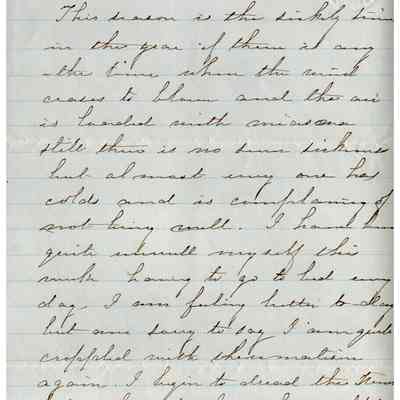 This season is the sickly time
in the year if there is any
the time when the wind
ceases to blow and the air
is loaded with miasma
still there is no sickness
but almost every one has
colds and is complaining of
not being well. I have been
quite unwell myself this
week having to go to bed every
day. I am feeling better to day
but am sorry to say I am quite
crippled with rheumatism
again. I begin to dread the